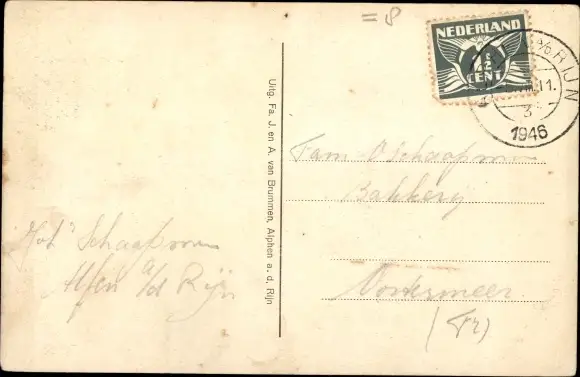 = 8
NEDERLAND
1½
CENT
RIJN
1946
Uitg. Fa. J. en A. van Brummen, Alphen a. d. Rijn
Fam Schaapman
Bakkerij
(Fr)
Schaapman
Alfen a/d Rijn